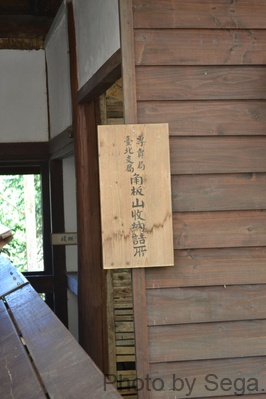 專賣局
臺北支局
角板山收納詰所
Photo by Sega.